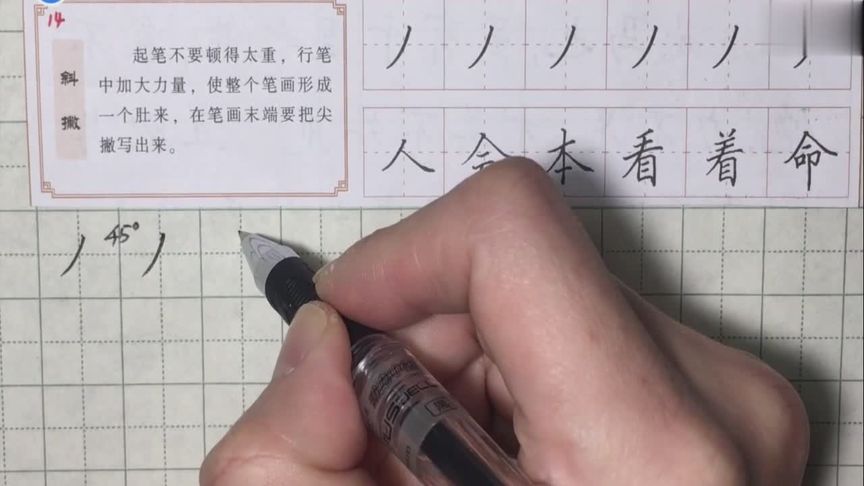 14
斜撇
起笔不要顿得太重，行笔
中加大力量，使整个笔画形成
一个肚来，在笔画末端要把尖
撇写出来。
丿 丿 丿 丿 丿 丿
人 会 本 看 着 命
丿 45° 丿